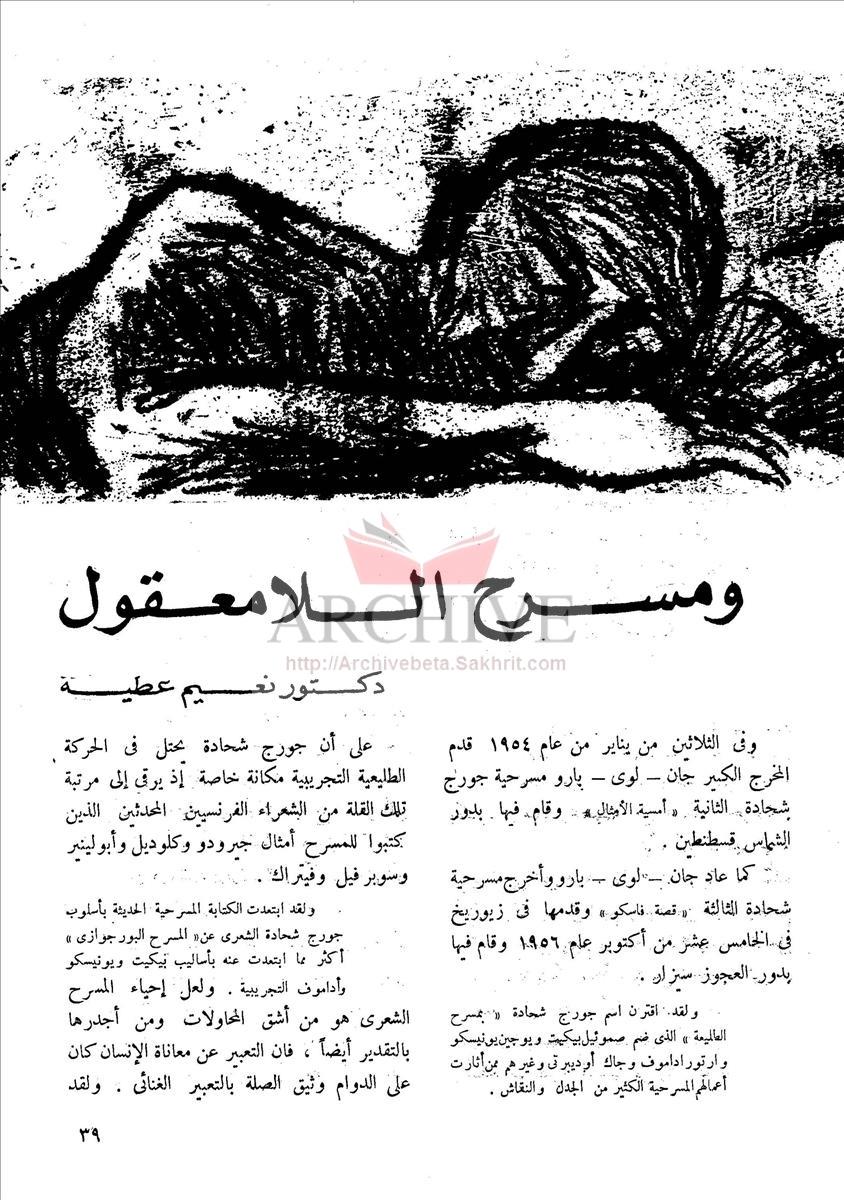 ومسرح اللامعقول
ARCHIVE
http://Archivebeta.Sakhrit.com
دكتور نعيم عطية
وفى الثلاثين من يناير من عام ١٩٥٤ قدم
المخرج الكبير جان — لوى — بارو مسرحية جورج
شحادة الثانية « أمسية الأمثال » وقام فيها بدور
الشماس قسطنطين .
كما عاد جان — لوى — بارو وأخرج مسرحية
شحادة الثالثة « قصة فاسكو » وقدمها فى زيوريخ
فى الخامس عشر من أكتوبر عام ١٩٥٦ وقام فيها
بدور العجوز سيزار .
ولقد اقترن اسم جورج شحادة « بمسرح
الطليعة » الذى ضم صموئيل بيكيت ويوجين يونيسكو
وارتور اداموف وجاك أوديبرتى وغيرهم ممن أثارت
أعمالهم المسرحية الكثير من الجدل والنقاش .
على أن جورج شحادة يحتل فى الحركة
الطليعية التجريبية مكانة خاصة إذ يرقى إلى مرتبة
تلك القلة من الشعراء الفرنسيين المحدثين الذين
كتبوا للمسرح أمثال جيرودو وكلوديل وأبولينير
وسوبر فيل وفيتراك .
ولقد ابتعدت الكتابة المسرحية الحديثة بأسلوب
جورج شحادة الشعرى عن « المسرح البورجوازى »
أكثر مما ابتعدت عنه بأساليب بيكيت ويونيسكو
وأداموف التجريبية . ولعل إحياء المسرح
الشعرى هو من أشق المحاولات ومن أجدرها
بالتقدير أيضاً ، فان التعبير عن معاناة الإنسان كان
على الدوام وثيق الصلة بالتعبير الغنائى . ولقد
٣٩